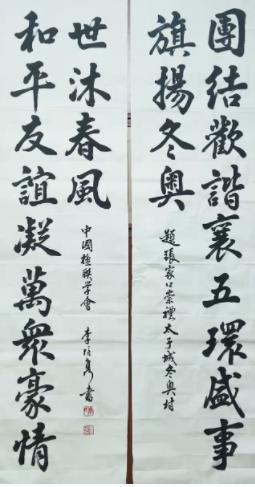 團結歡諧襄五環盛事
旗揚冬奧
題張家口崇禮太子城冬奧村
和平友誼凝萬衆豪情
世沐春風
中國楹聯学會 李培隽書